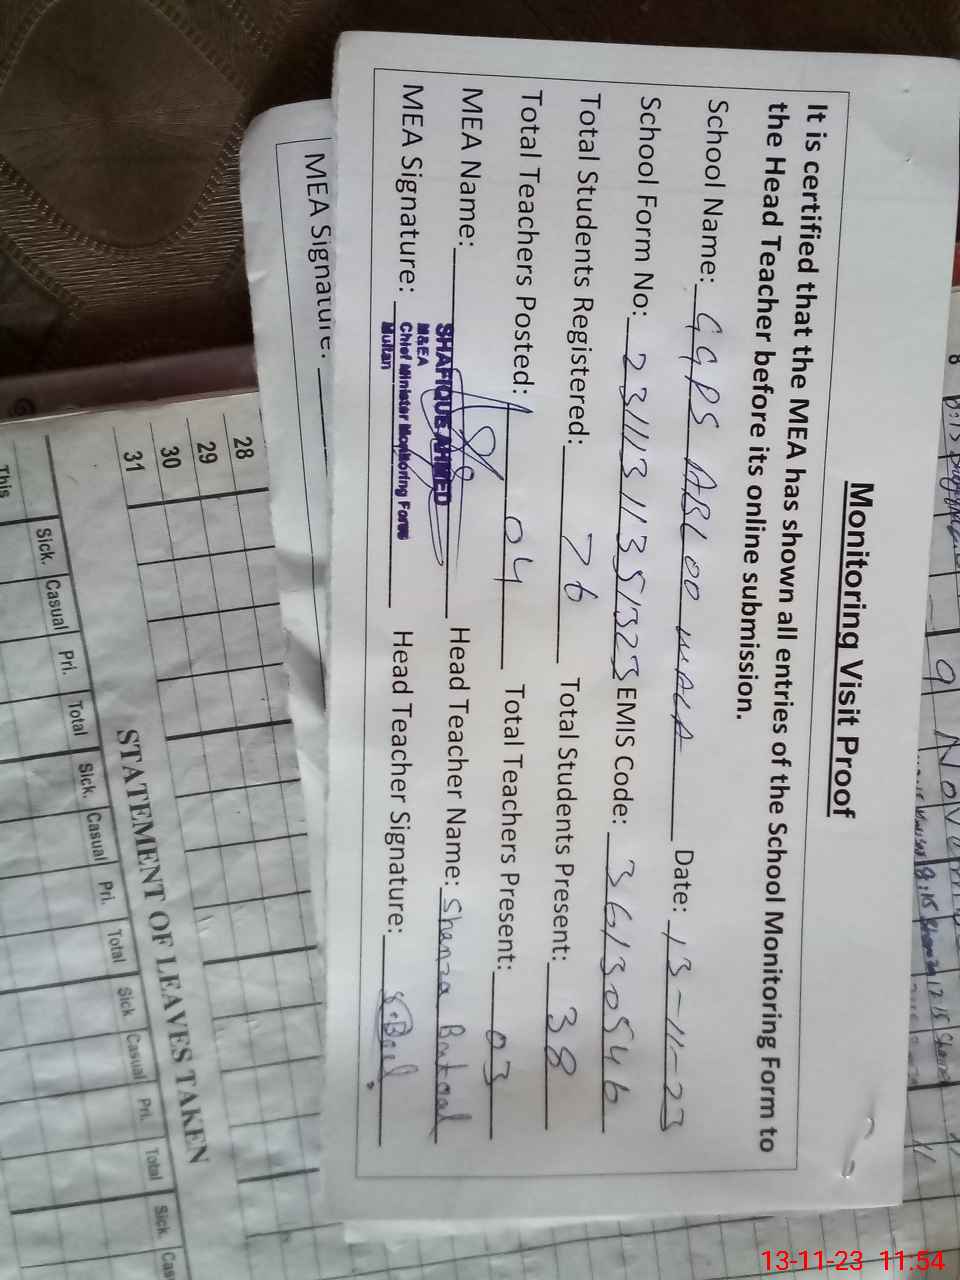 Monitoring Visit Proof
It is certified that the MEA has shown all entries of the School Monitoring Form to
the Head Teacher before its online submission.
School Name: GGPS ABLOO WALA Date: 13-11-23
School Form No: EMIS Code: 36130546
Total Students Registered: 76 Total Students Present: 38
Total Teachers Posted: 04 Total Teachers Present: 03
MEA Name: SHAFIQUE AHMED Head Teacher Name: Shanza
M&EA
MEA Signature: Chief Minister Monitoring Force Head Teacher Signature:
Multan
MEA Signature:
28
29
30
31
STATEMENT OF LEAVES TAKEN
Sick. Casual Pri. Total Sick. Casual Pri. Total Sick Casual Pri. Total Sick Cas
This
13-11-23 11:54